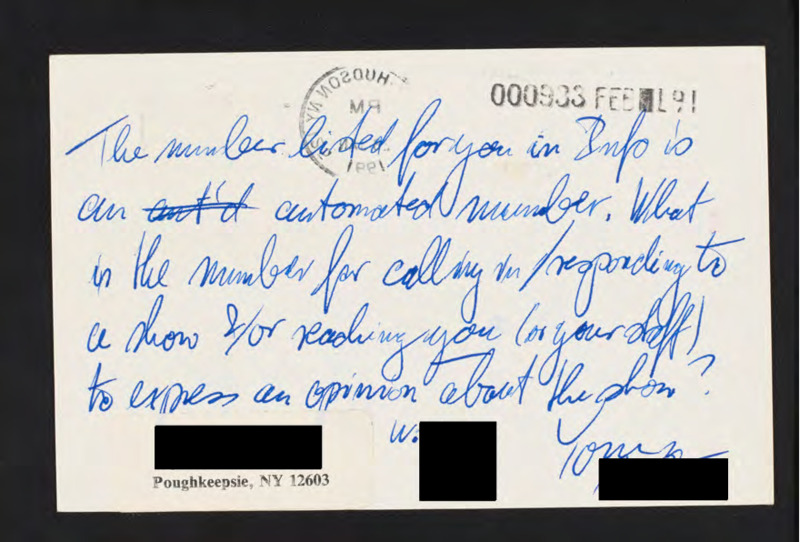 000933 FEB 1 91
HUDSON NY
PM
1991
The number listed for you in Info is
an aut'd automated number. What
is the number for calling in/responding to
a show &/or reaching you (or your staff)
to express an opinion about the show?
W:
Poughkeepsie, NY 12603